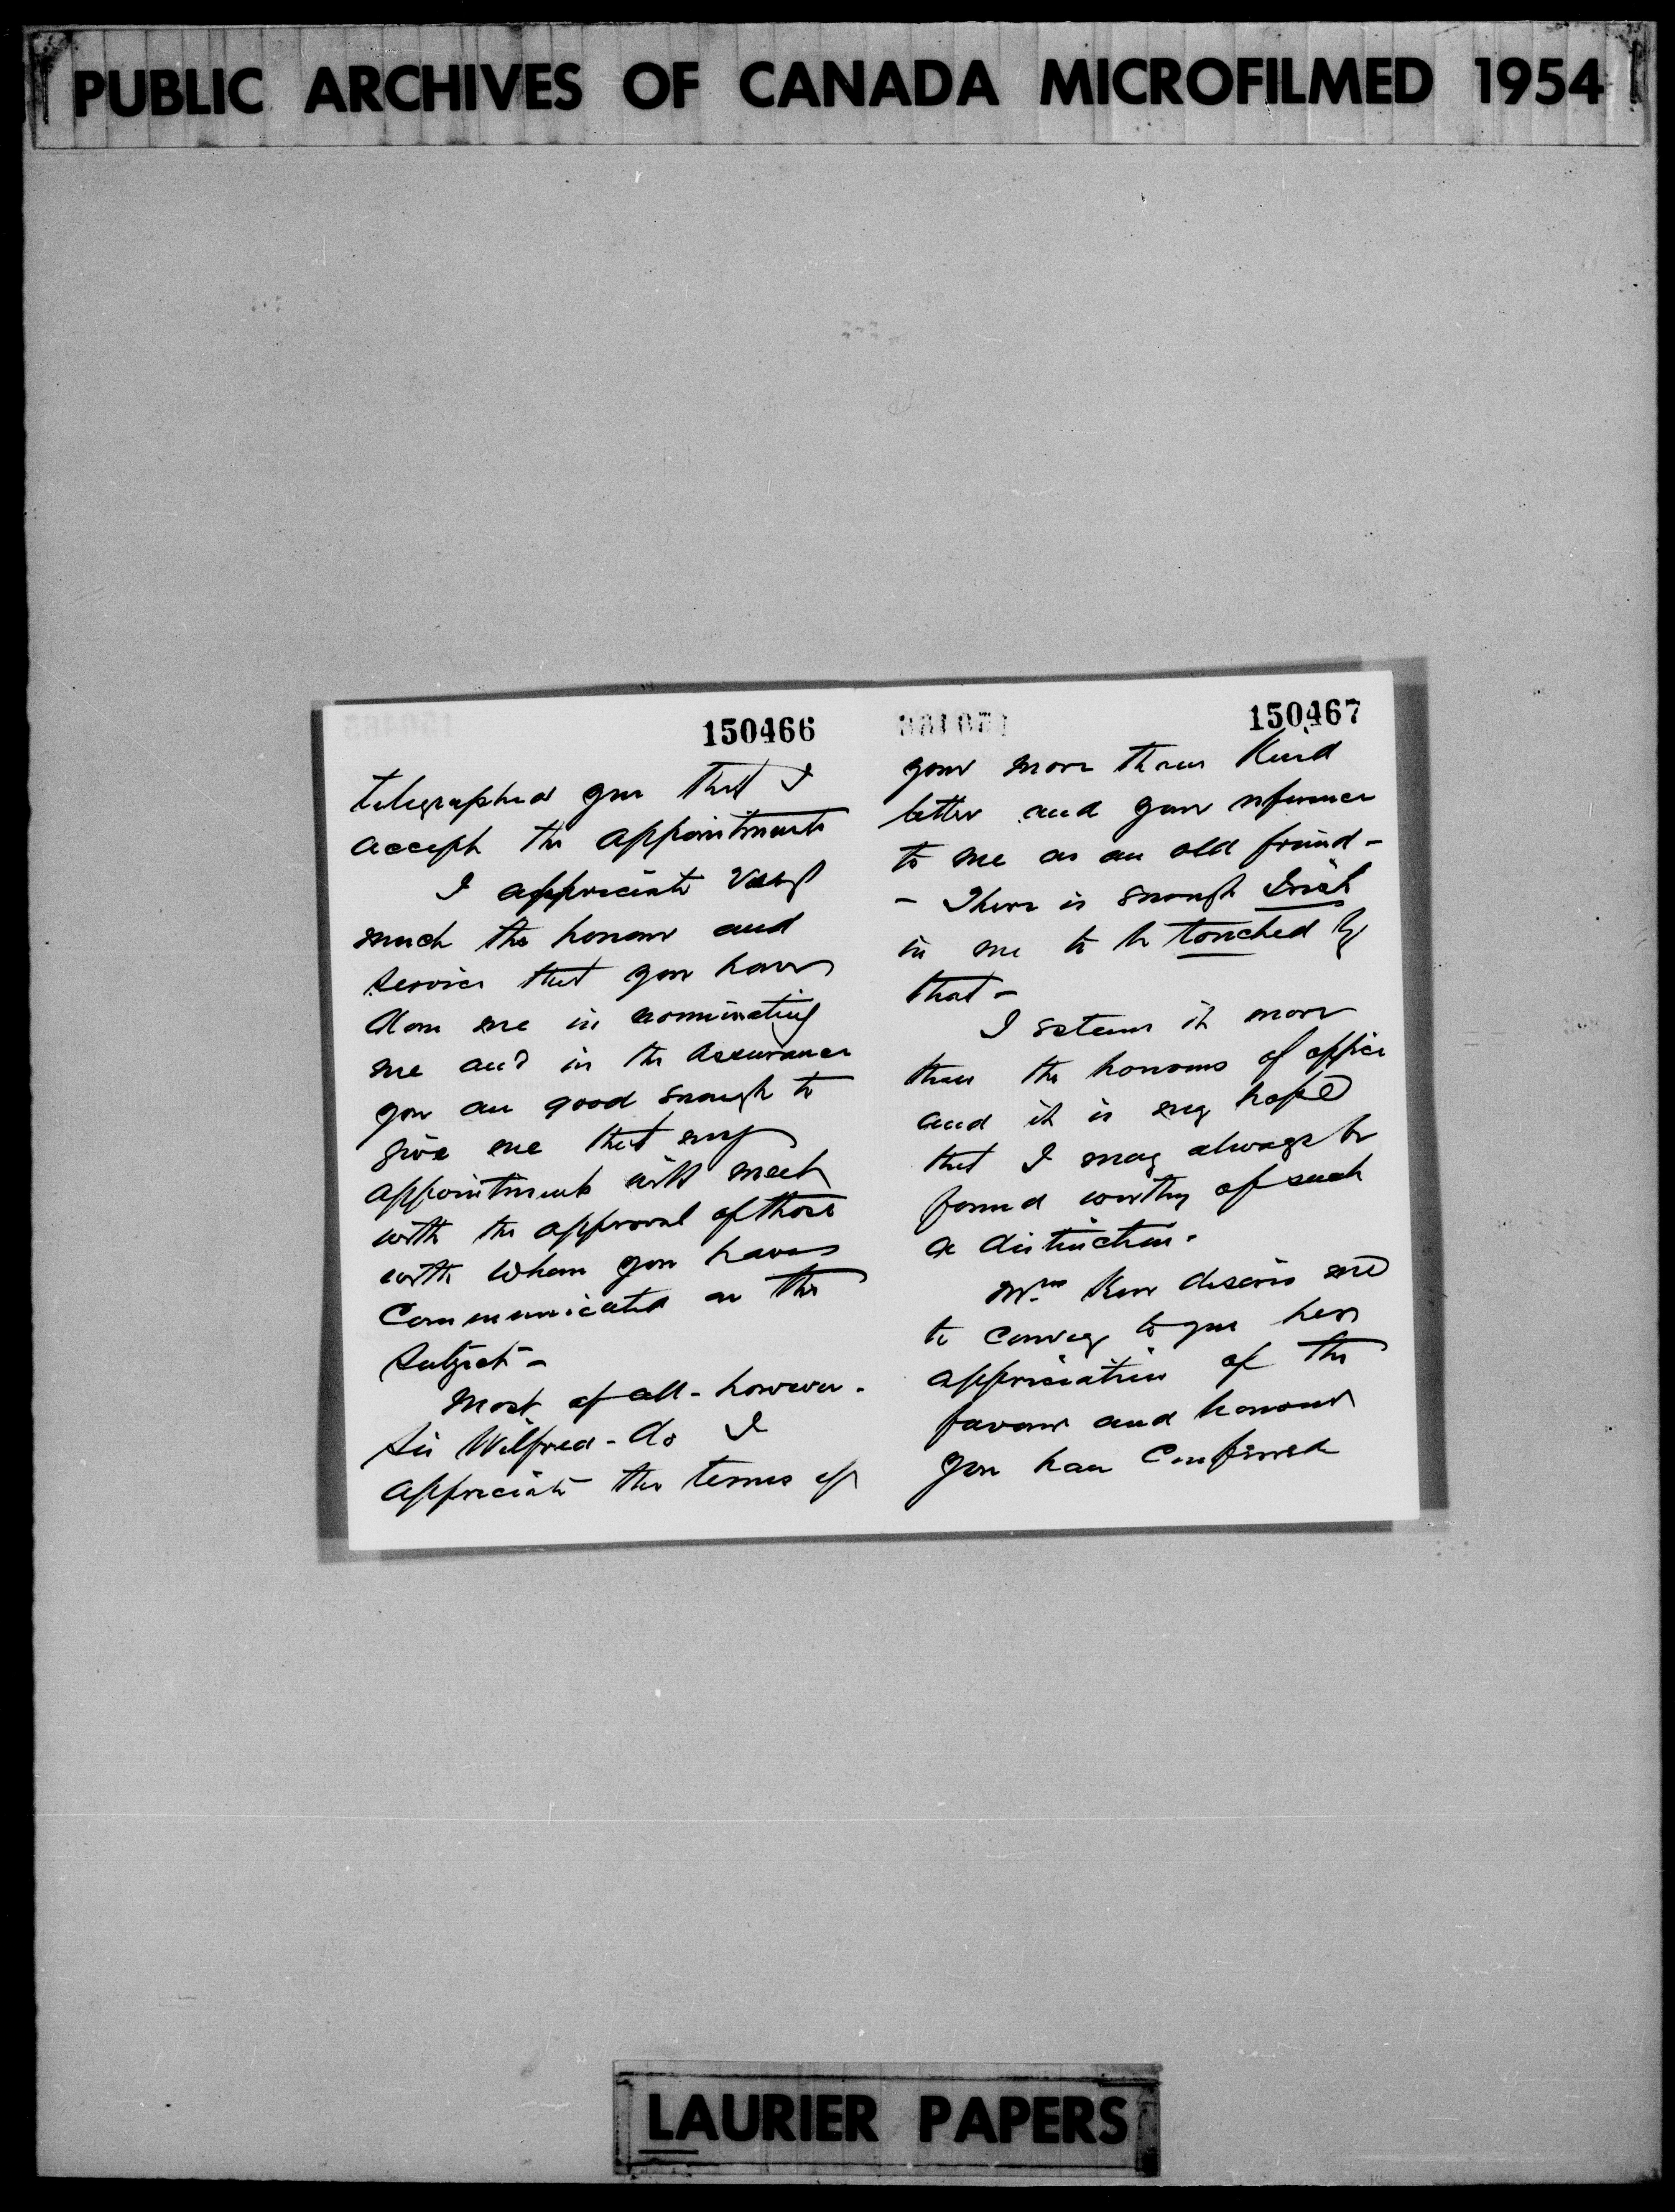 PUBLIC ARCHIVES OF CANADA MICROFILMED 1954
150466
telegraphed you that I
accept the appointment
I appreciate very
much the honour and
service that you have
done me in nominating
me and in the assurance
you are good enough to
give me that my
appointment will meet
with the approval of those
with whom you have
Communicated on the
subject -
Most of all - however -
Sir Wilfred - do I
appreciate the terms of
150467
your more than kind
letter and your reference
to me as an old friend -
- There is enough Irish
in me to be touched by
that -
I esteem it more
than the honours of office
and it is my hope
that I may always be
found worthy of such
a distinction.
Mrs Kerr desires me
to convey to you her
appreciation of the
favour and honour
you have Conferred
LAURIER PAPERS